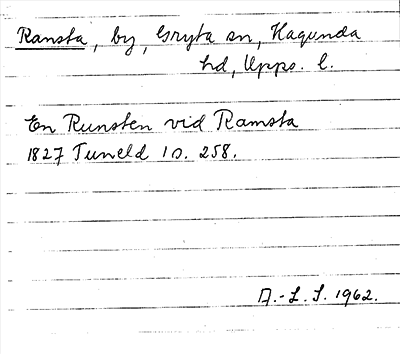 Ransta, by, Gryta sn, Hagunda
hd, Upps. l.
En Runsten vid Ramsta
1827 Tuneld 1 s. 258.
A.-L. S. 1962.